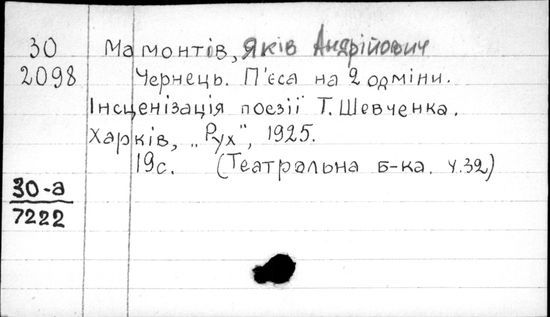 30 Мамонтів, Яків Андрійович
2098 Чернець. П'єса на 2 одміни.
Інсценізація поезії Т. Шевченка.
Харків, „Рух", 1925.
19с. (Театральна б-ка. ч.32)
30-а
7222